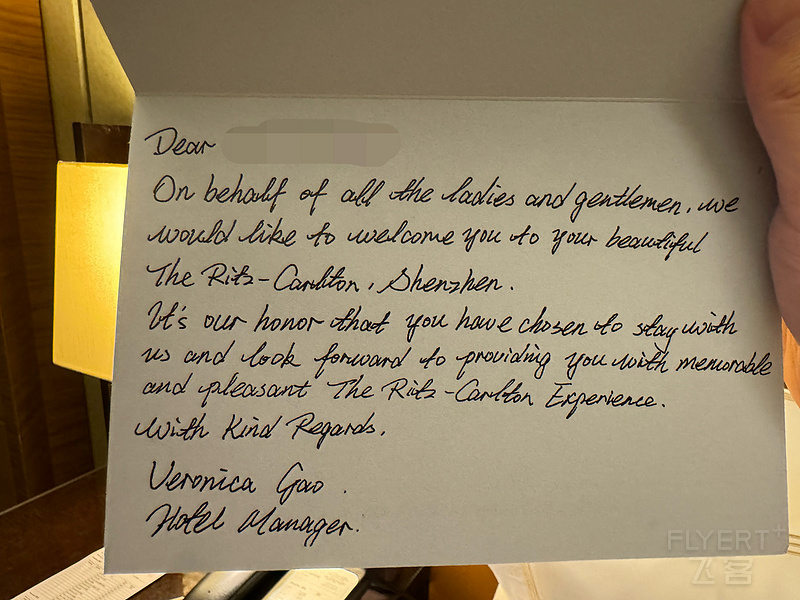 Dear
On behalf of all the ladies and gentlemen, we
would like to welcome you to your beautiful
The Ritz-Carlton, Shenzhen.
It's our honor that you have chosen to stay with
us and look forward to providing you with memorable
and pleasant The Ritz-Carlton Experience.
With Kind Regards,
Veronica Gao.
Hotel Manager.
FLYERT+
飞客